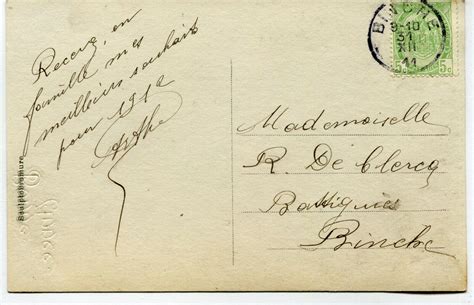 Recevez, en
famille mes
meilleurs souhaits
pour 1912
Mademoiselle
R. De Clercq
Battignies
Binche
BINCHE
9-10
31
XII
11
5c 5c